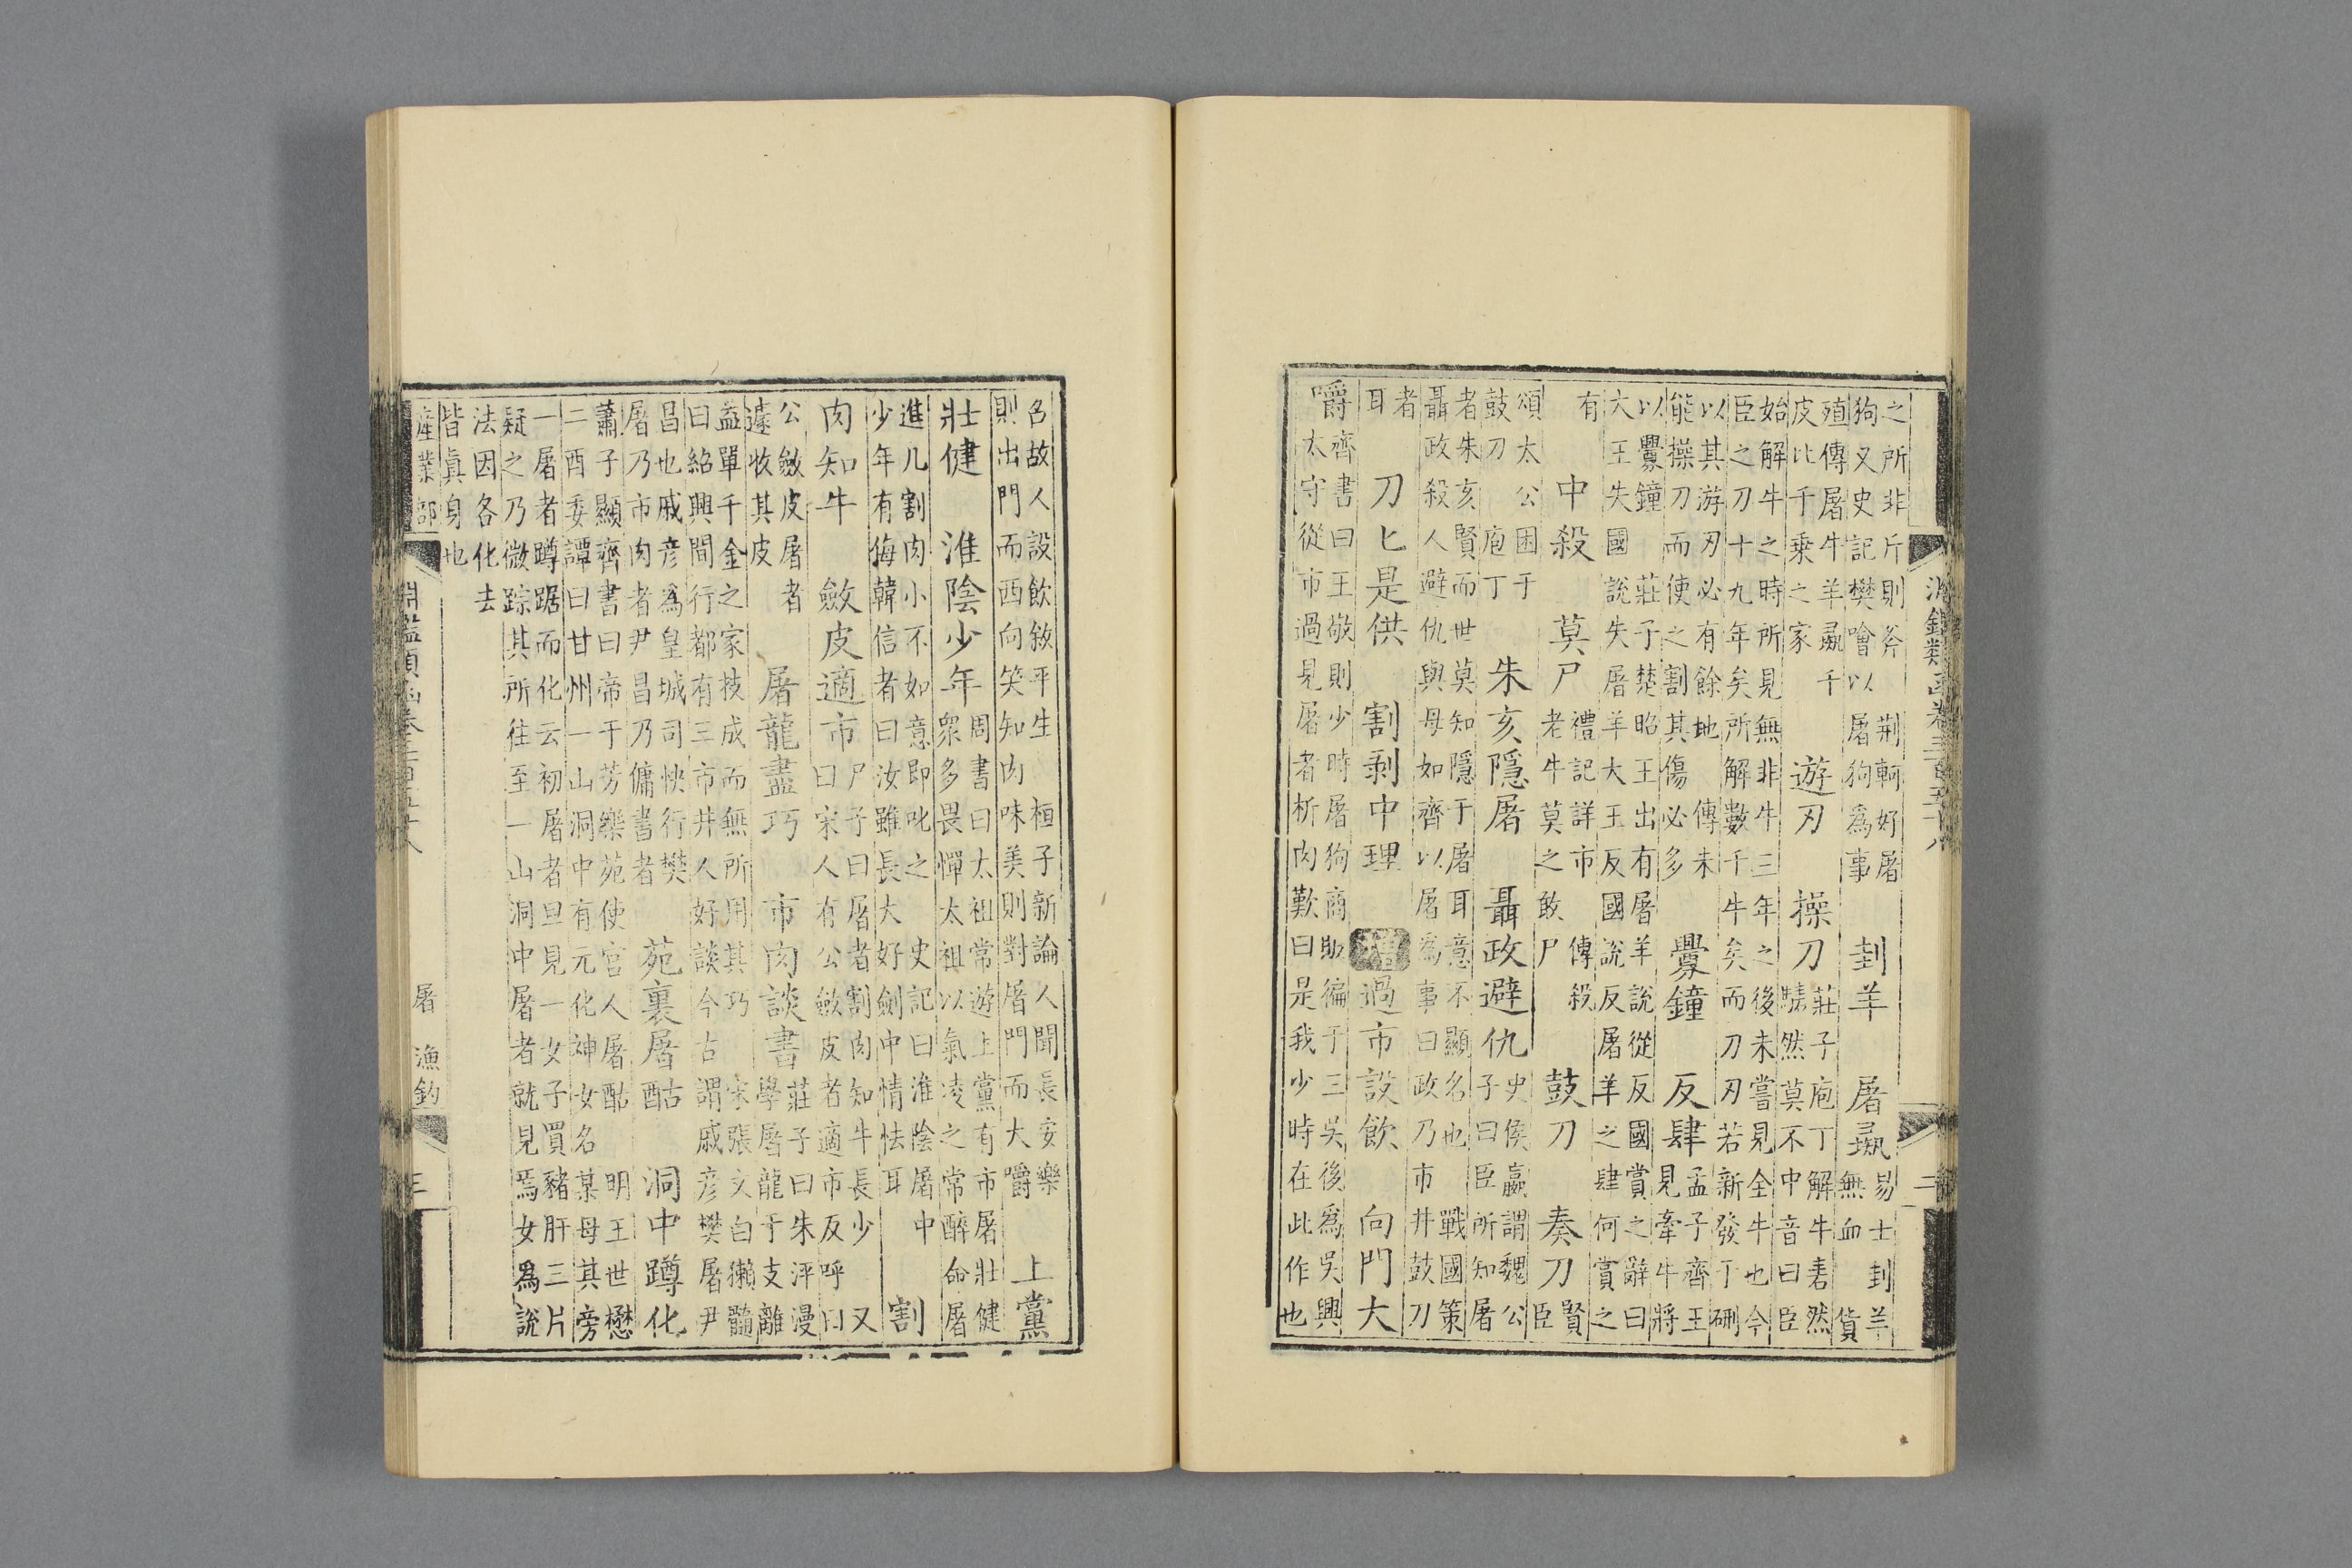 淵鑑類函卷三百五十八 二
之所非斤則斧 荆軻好屠
狗又史記樊噲以屠狗爲事
刲羊 屠羸
易士刲羊
無血 貨
殖傳屠牛羊羸千
皮比千乗之家
遊刃 操刀
莊子庖丁解牛砉然
騞然莫不中音曰臣
始解牛之時所見無非牛三年之後未嘗見全牛也今
臣之刀十九年矣所解數千牛矣而刀刃若新發于硎
以其游刃必有餘地 傳未
能操刀而使之割其傷必多
釁鐘 反肆
孟子齊王
見牽牛將
以釁鐘 莊子楚昭王出有屠羊說從反國賞之辭曰
大王失國說失屠羊大王反國說反屠羊之肆何賞之
有
中殺 莫尸
禮記詳市 傳殺
老牛莫之敢尸
鼓刀 奏刀
賢
臣
頌太公困于
鼓刀 庖丁
朱亥隱屠 聶政避仇
史侯嬴謂魏公
子曰臣所知屠
者朱亥賢而世莫知隱于屠耳意不顯名也 戰國策
聶政殺人避仇與母如齊以屠爲事曰政乃市井鼓刀
者
耳
刀匕是供 割剥中理 增過市設飲 向門大
嚼
齊書曰王敬則少時屠狗商販徧于三吳後爲吳興
太守從市過見屠者析肉歎曰是我少時在此作也
名故人設飲敘平生 桓子新論人聞長安樂
則出門而西向笑知肉味美則對屠門而大嚼
上黨
壯健 淮陰少年
周書曰太祖常遊上黨有市屠壯健
衆多畏憚太祖以氣凌之常醉命屠
進几割肉小不如意即叱之 史記曰淮陰屠中
少年有侮韓信者曰汝雖長大好劍中情怯耳
割
肉知牛 斂皮適市
尸子曰屠者割肉知牛長少 又
曰宋人有公斂皮者適市反呼曰
公斂皮屠者
遽收其皮
屠龍盡巧 市肉談書
莊子曰朱泙漫
學屠龍于支離
益單千金之家技成而無所用其巧 宋張文白獺髓
曰紹興間行都有三市井人好談今古謂戚彥樊屠尹
昌也戚彥爲皇城司快行樊
屠乃市肉者尹昌乃傭書者
苑裏屠酤 洞中蹲化
蕭子顯齊書曰帝于芳樂苑使宫人屠酤 明王世懋
二酉委譚曰甘州一山洞中有元化神女名某母其旁
一屠者蹲踞而化云初屠者旦見一女子買豬肝三片
疑之乃微踪其所往至一山洞中屠者就見焉女爲說
法因各化去
皆眞身也
產業部 淵鑑類函卷三百五十八 屠 漁釣 三